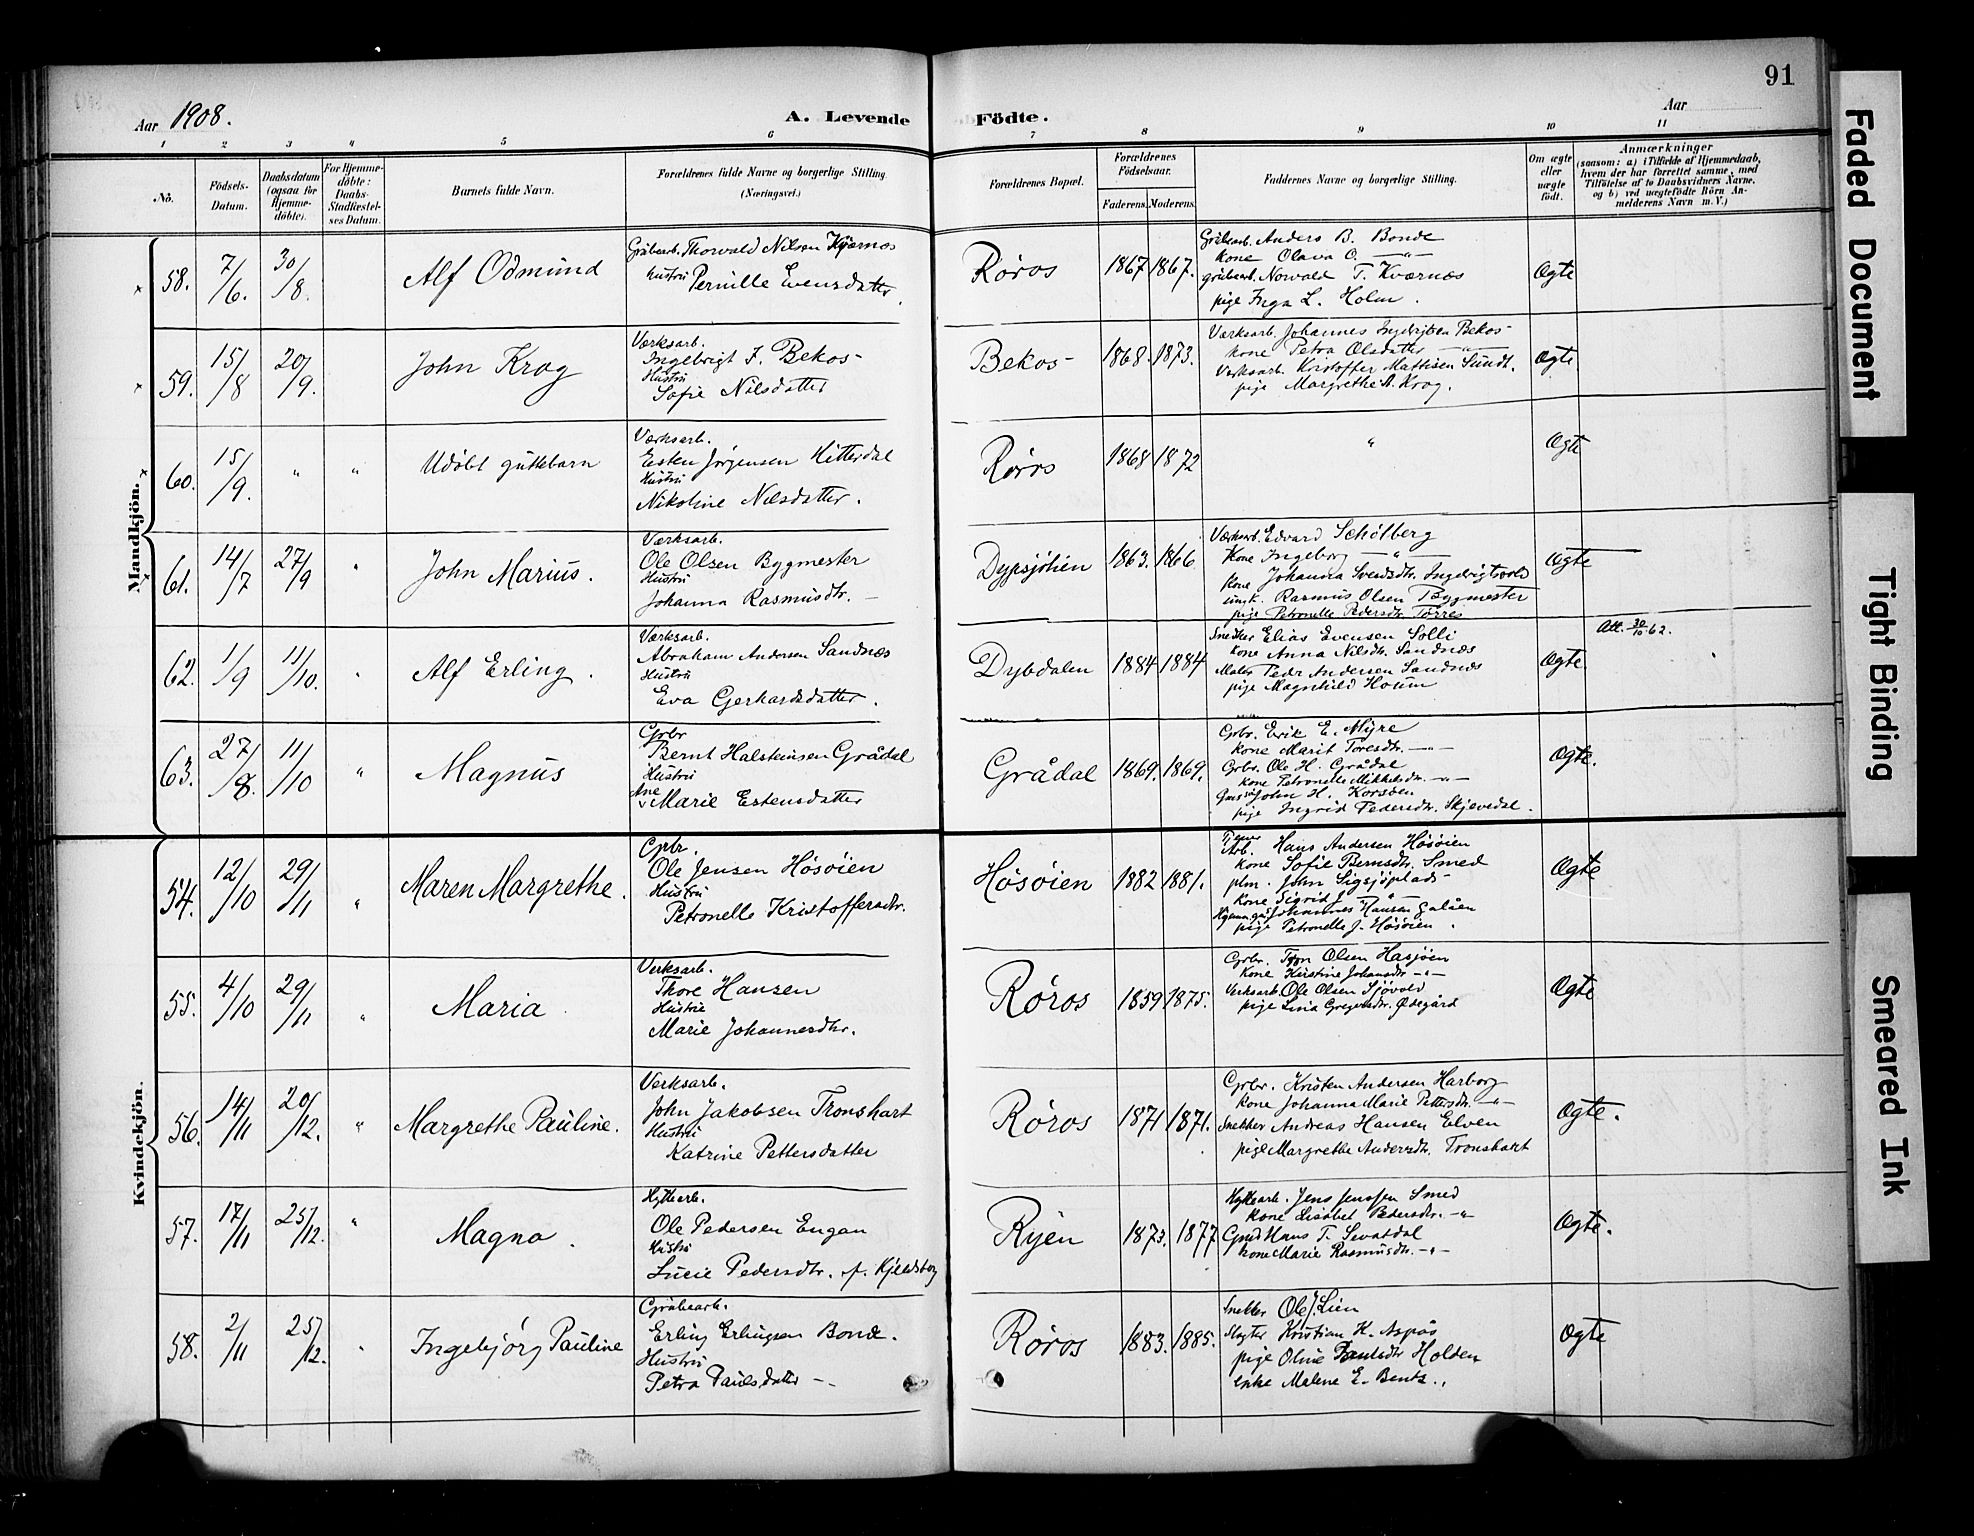 91
Aar 1908.
A. Levende
Födte.
Aar
1 2 3 4 5 6 7 8 9 10 11
No.
Födsels-Datum.
Daabsdatum (ogsaa for Hjemmedöbte).
For Hjemmedöbte: Daabs-Stadfæstelses Datum.
Barnets fulde Navn.
Forældrenes fulde Navne og borgerlige Stilling (Næringsvei.)
Forældrenes Bopæl.
Forældrenes Födselsaar.
Faderens.
Moderens.
Faddernes Navne og borgerlige Stilling.
Om ægte eller uægte födt.
Anmærkninger
(saasom: a) i Tilfælde af Hjemmedaab, hvem der har forrettet samme, med Tilföielse af to Daabsvidners Navne, og b) ved uægtefödte Börn Anmelderens Navn m. V.)
Mandkjön.
58. 7/6. 30/8. Alf Odmund
Grubearb. Thorvald Nilsen Kværnes
Hustru Pernille Evensdatter.
Røros 1867 1867.
Grubearb. Anders B. Bonde
Kone Olava O. —"—
grubearb. Norvald T. Kværnæs
pige Inga L. Holm.
Ægte
59. 15/8 20/9. John Krog
Værksarb.
Ingebrigt J. Bekos-
Hustru
Sofie Nilsdatter
Bekos- 1868. 1873.
Værksarb. Johannes Ingebrigtsen Bekos-
kone Petra Olsdatter —"—
Værksarb. Kristoffer Mattisen Sundt.
pige Margrethe A. Krog.
Ægte
60. 15/9. " " Udöbt guttebarn
Værksarb.
Esten Jørgensen Hitterdal
Hustru
Nikoline Nilsdatter.
Røros 1868 1872
"
Ægte
61. 14/7 27/9 " John Marius.
Værksarb.
Ole Olsen Bygmester
Hustru
Johanna Rasmusdtr. —
Dypsjölien 1863. 1866
Værksarb. Edvard Schölberg
Kone Ingeborg —"—
kone Johanna Svendsdtr. Ingebrigtsvold
ungk. Rasmus Olsen Bygmester
pige Petronelle Pedersdtr. Torres
Ægte
62. 1/9 11/10. " Alf Erling.
Værksarb.
Abraham Andersen Sandnæs
Hustru
Eva Gerhardsdatter.
Dybdalen 1884 1884
Snekker Elias Evensen Solli
kone Anna Nilsdtr. Sandnæs
Maler Peder Andersen Sandnæs
pige Magnhild Houm
Ægte.
Att. 30/10-62.
63. 27/8. 11/10 " Magnus
Grbr
Bernt Halsteinsen Grådal
Hustru
Ane
Marie Estensdatter
Grådal 1869. 1869.
Grbr. Erik E. Myre
kone Marit Toresdtr. —"—
Grbr. Ole H. Grådal
kone Petronelle Mikkelsdtr. —"—
John H. Korsvoen
pige Ingrid Pedersdtr. Skjevdal.
Ægte.
Kvindekjön.
54. 12/10 29/11 " Maren Margrethe.
Grbr.
Ole Jensen Hösöien
Hustru
Petronelle Kristoffersdtr.
Hösöien 1882 1881.
Arb. Hans Andersen Hösöien
kone Sofie Berntsdtr. Smed
plm. John Sigsjöplads-
kone Sigrid J —"—
Johannes Hansen Galåen
pige Petronelle J. Hösöien.
Ægte
55. 4/10 29/11 " Maria
Verksarb.
Thore Hansen
Hustru
Marie Johannesdtr.
Røros 1859 1875.
Grbr. Olsen Hasjöen
Kone Kirstine Johansdtr —"—
Verksarb. Ole Olsen Sjövold
pige Lina Gregersdtr. Ødegård
Ægte
56. 14/11 20/12. " Margrethe Pauline.
Verksarb.
John Jakobsen Tronshart
Hustru
Katrine Pettersdatter
Røros 1871 1871.
Grbr. Kristen Andersen Harborg
kone Johanna Marie Pettersdtr. —"—
Snekker Andreas Hansen Elven
pige Margrethe Andersdtr. Tronshart
Ægte.
57. 17/11 25/12. " Magna.
Hyttearb.
Ole Pedersen Engan
Hustru
Lucie Pedersdtr. f. Kjeldsberg
Ryen 1873. 1877
Hyttearb. Jens Jenssen Smed
kone Lisabet Pedersdtr. —"
Gmd Hans T. Sevatdal
kone Marie Rasmusdtr. —"—
Ægte.
58. 2/11 25/12. " Ingebjörg Pauline
Grubearb.
Erling Erlingsen Bonde.
Hustru
Petra Paulsdatter —
Røros 1883. 1885.
Snekker Ole J. Lien
Slagter Kristian H. Aspås
pige Oline Paulsdtr Holden
enke Malene E. Bentz.
Ægte
Faded Document
Tight Binding
Smeared Ink